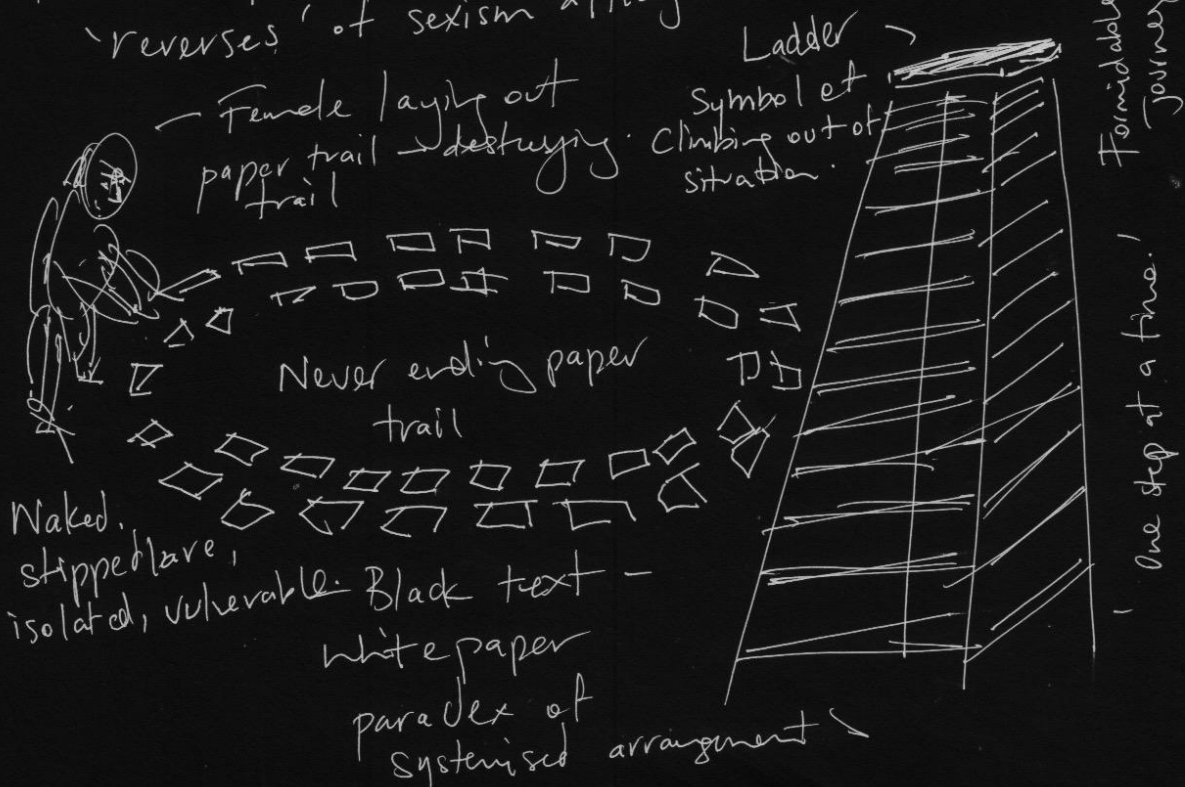 'reverses' of sexism
Female laying out
paper trail → destroying
trail
Ladder
Symbol of
Climbing out of
situation.
Formidable
Journey
'One step at a time!'
Never ending paper
trail
Naked,
stripped bare,
isolated, vulnerable.
Black text -
white paper
paradox of
systemised arrangement